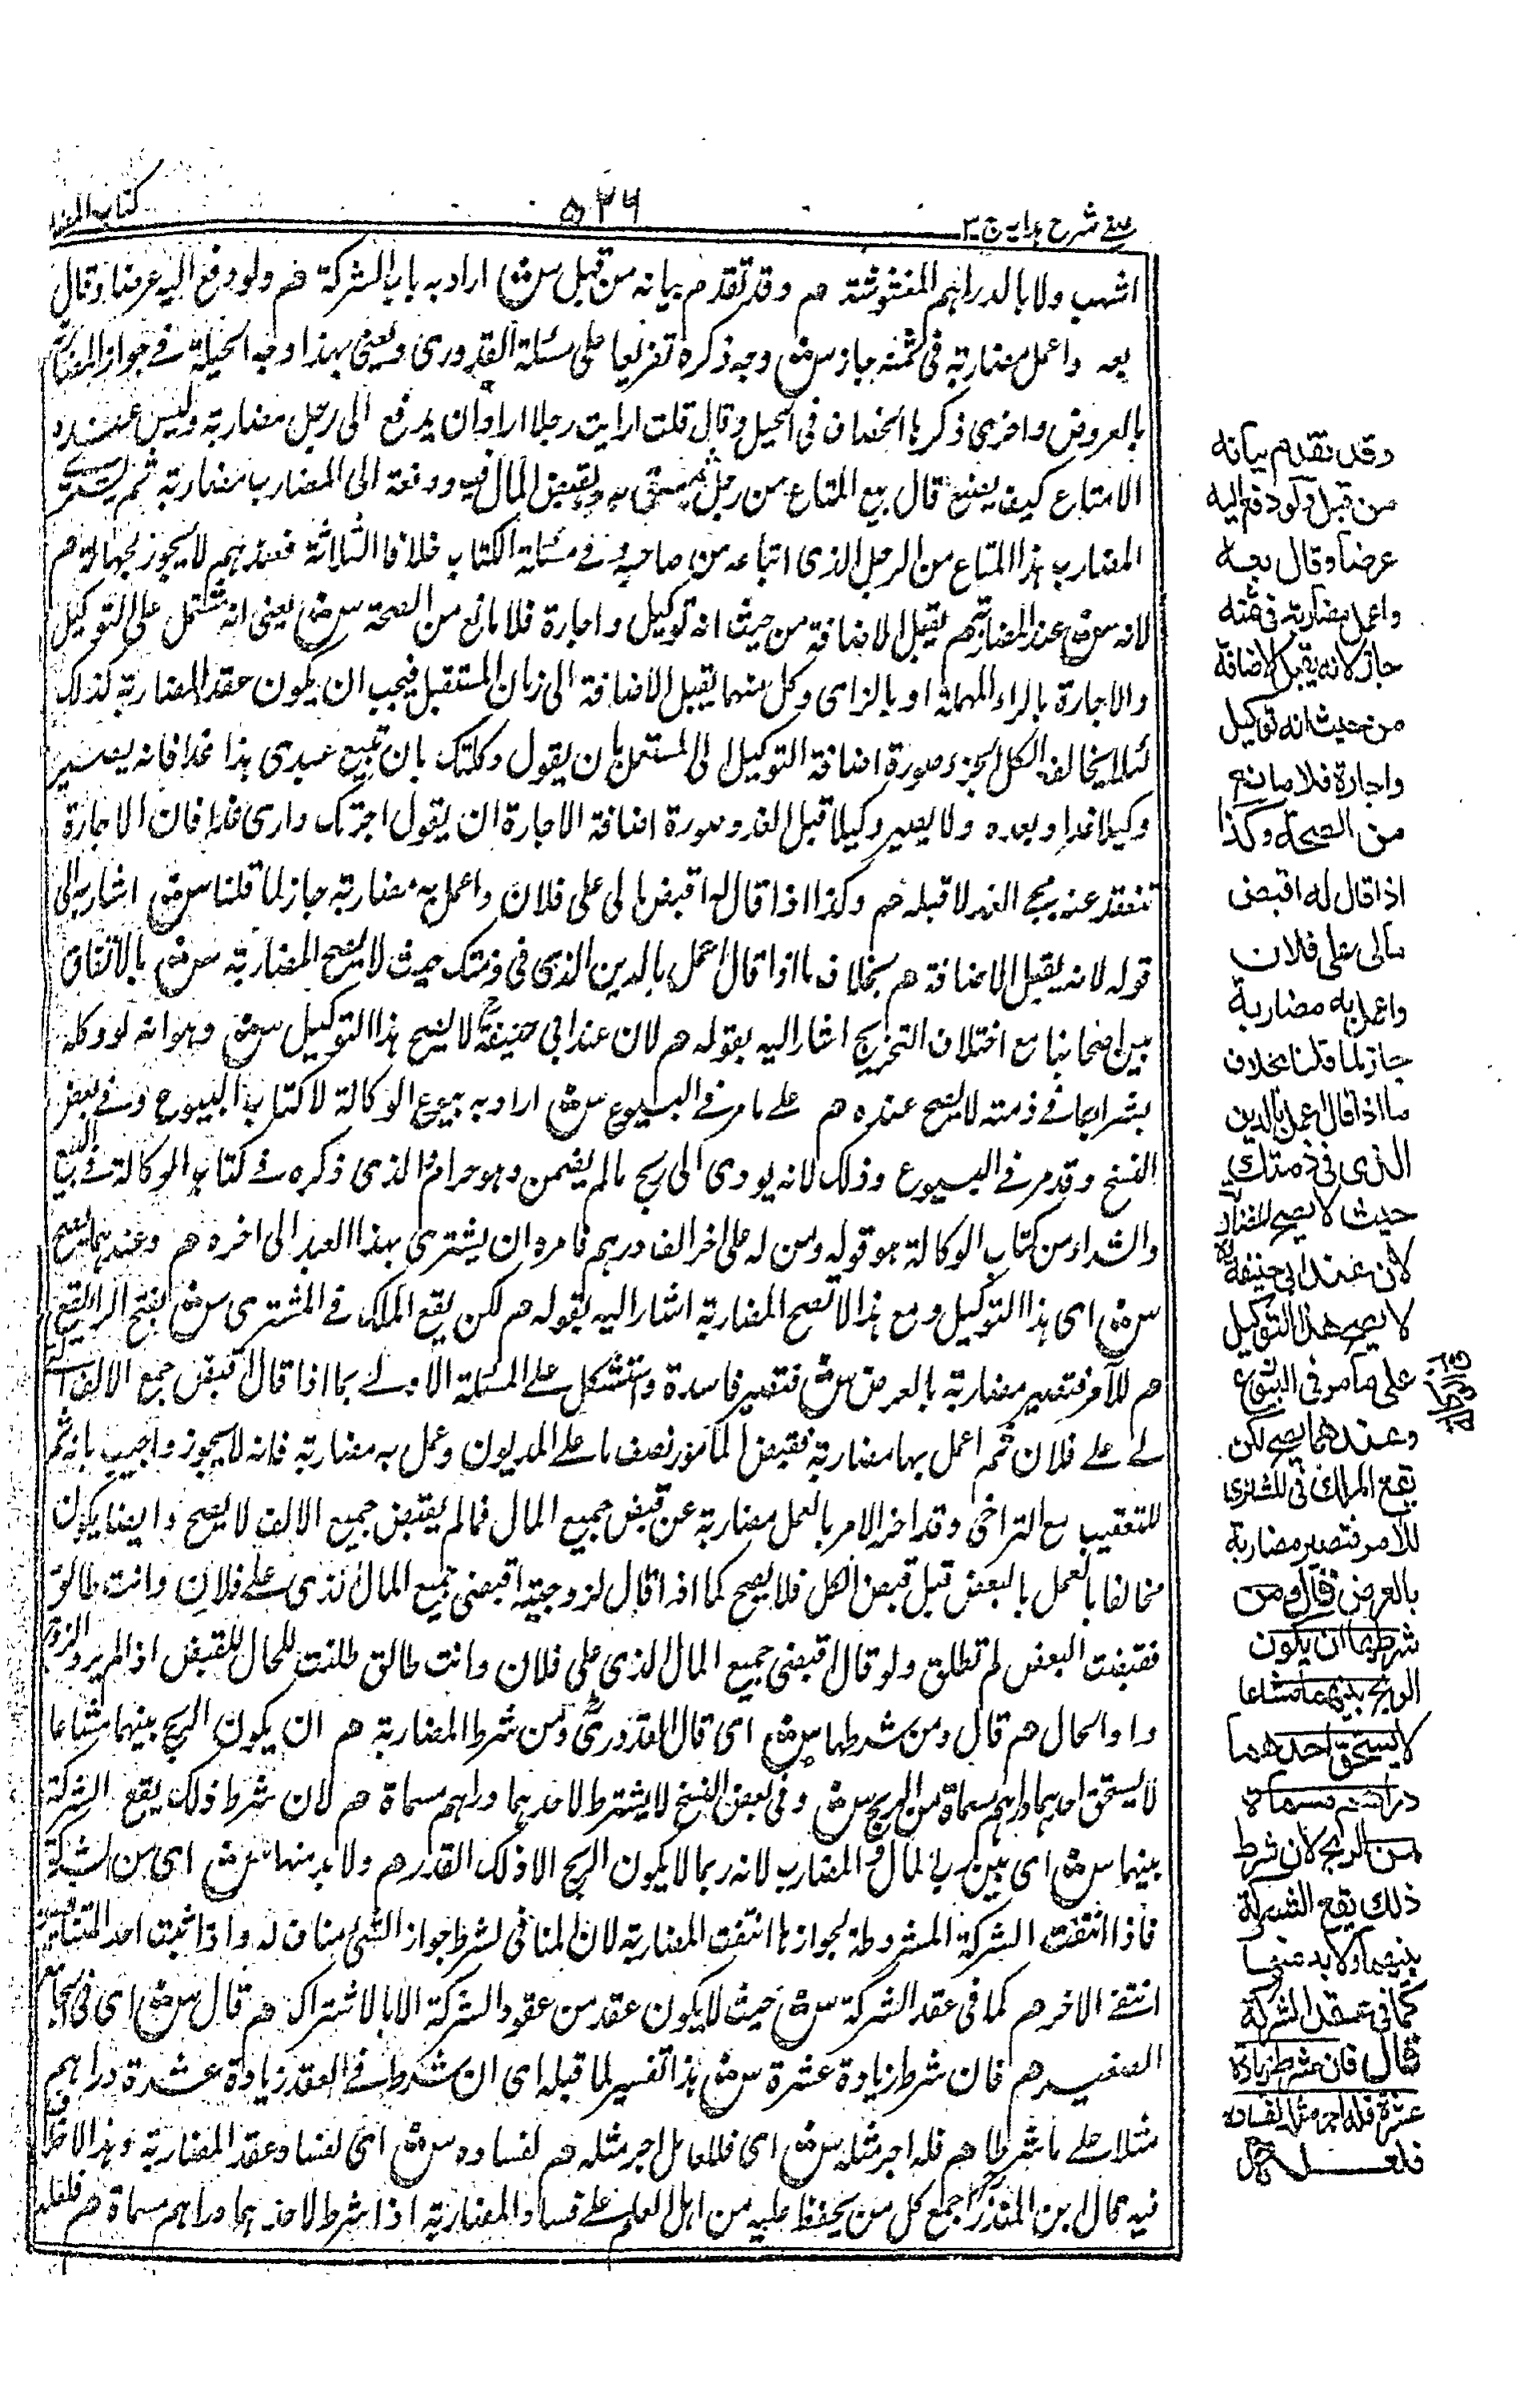 عينى شرح هدايه ج ٣
٥٢٦
كتاب المضا
اشهب ولا بالدراهم المغشوشة هم وقد تقدم بيانه من قبل ش اراد به باب الشركة هم ولو دفع اليه عرضا وقال
بعه واعمل مضاربة فى ثمنه جاز ش وجه ذكره تفريعا على مسئلة القدورى ويعنى بهذا وجه الحيلة فى جواز المضاربة
بالعروض واخرى ذكرها الخصاف فى الحيل وقال قلت ارايت رجلا اراد ان يدفع الى رجل مضاربة وليس عنده
الا متاع كيف يصنع قال يبيع المتاع من رجل يثق به ويقبض المال فيه ودفعه الى المضارب مضاربة ثم يشترى
المضارب هذا المتاع من الرجل الذى ابتاعه من صاحبه وفى مسئلة الكتاب خلاف الثلاثة فعندهم لا يجوز لجهالته هم
لانه ش عند المضاربة هم يقبل الاضافة من حيث انه توكيل واجارة فلا مانع من الصحة ش يعنى انه مشتمل على التوكيل
والاجارة بالراء المهملة او بالزاى وكل منهما يقبل الاضافة الى زمان المستقبل فيجب ان يكون عقد المضاربة كذلك
لئلا يخالف الكل الجزء وصورة اضافة التوكيل الى المستقبل بان يقول وكلتك بان تبيع عبدى هذا غدا فانه يصير
وكيلا غدا وبعده ولا يصير وكيلا قبل الغد وصورة اضافة الاجارة ان يقول اجرتك دارى غدا فان الاجارة
تنعقد عند مجئ الغد لا قبله هم وكذا اذا قال له اقبض مالى على فلان واعمل به مضاربة جاز لما قلنا ش اشار به الى
قوله لانه يقبل الاضافة هم بخلاف ما اذا قال اعمل بالدين الذى فى ذمتك حيث لا يصح المضاربة ش بالاتفاق
بين اصحابنا مع اختلاف التخريج اشار اليه بقوله هم لان عند ابى حنيفة لا يصح هذا التوكيل ش وهو انه لو وكله
بشراء بما فى ذمته لا يصح عنده هم على ما مر فى البيوع ش اراد به بيوع الوكالة لا كتاب البيوع وفى بعض
النسخ وقد مر فى البيوع وذلك لانه يودى الى ربح ما لم يضمن وهو حرام الذى ذكره فى كتاب الوكالة فى البيع
والشراء من كتاب الوكالة هو قوله ومن له على اخر الف درهم فامره ان يشترى بهذا العبد الى اخره هم وعندهما يصح
ش اى هذا التوكيل ومع هذا لا تصح المضاربة اشار اليه بقوله هم لكن يقع الملك فى المشترى ش بفتح الراء يقع
هم للآمر فتصير مضاربة بالعرض ش فتصير فاسدة واستشكل على المسئلة الاولى بما اذا قال اقبض جميع الالف
لى على فلان ثم اعمل بها مضاربة فقبض المامور نصف ما على المديون وعمل به مضاربة فانه لا يجوز واجيب بان ثم
للتعقيب مع التراخى وقد اخر الامر بالعمل مضاربة عن قبض جميع المال فما لم يقبض جميع الالف لا يصح وايضا يكون
مخالفا بالعمل بالبعض قبل قبض الكل فلا يصح كما اذا قال لزوجته اقبضى جميع المال الذى على فلان وانت طالق
فقبضت البعض لم تطلق ولو قال اقبضى جميع المال الذى على فلان وانت طالق طلقت للحال للقبض اذا لم يرد الزوج
واو الحال هم قال ومن شرطها ش اى قال القدورى ومن شرط المضاربة هم ان يكون الربح بينهما مشاعا
لا يستحق احدهما دراهم مسماة من الربح ش وفى بعض النسخ لا يشترط لاحدهما دراهم مسماة هم لان شرط ذلك يقع الشركة
بينهما ش اى بين رب المال والمضارب لانه ربما لا يكون الربح الا ذلك القدر هم ولا بد منها ش اى من الشركة
فاذا انتفت الشركة المشروطة لجوازها انتفت المضاربة لان المنافى لشرط جواز الشئ مناف له واذا ثبت احد المتنافيين
انتفى الاخر هم كما فى عقد الشركة ش حيث لا يكون عقد من عقود الشركة الا بالاشتراك هم قال ش اى فى الجامع
الصغير هم فان شرط زيادة عشرة ش هذا تفسير لما قبله اى ان شرط فى العقد زيادة عشرة دراهم
مثلا على ما شرطا هم فله اجر مثله ش اى فللعامل اجر مثله هم لفساده ش اى لفساد عقد المضاربة وهذا لا خلاف
فيه قال ابن المنذر اجمع كل من يحفظ عليه من اهل العلم على فساد المضاربة اذا شرط لاحدهما دراهم مسماة هم فلعله
وقد تقدم بيانه
من قبل ولو دفع اليه
عرضا وقال بعه
واعمل مضاربة فى ثمنه
جاز لانه يقبل الاضافة
من حيث انه توكيل
واجارة فلا مانع
من الصحة وكذا
اذا قال له اقبض
مالى على فلان
واعمل به مضاربة
جاز لما قلنا بخلاف
ما اذا قال اعمل بالدين
الذى فى ذمتك
حيث لا يصح المضاربة
لان عند ابى حنيفة
لا يصح هذا التوكيل
على ما مر فى البيوع
وعندهما يصح لكن
يقع الملك فى المشترى
للآمر فتصير مضاربة
بالعرض قال ومن
شرطها ان يكون
الربح بينهما مشاعا
لا يستحق احدهما
دراهم مسماة
من الربح لان شرط
ذلك يقع الشركة
بينهما ولا بد منها
كما فى عقد الشركة
قال فان شرط زيادة
عشرة فله اجر مثله لفساده
فلعل